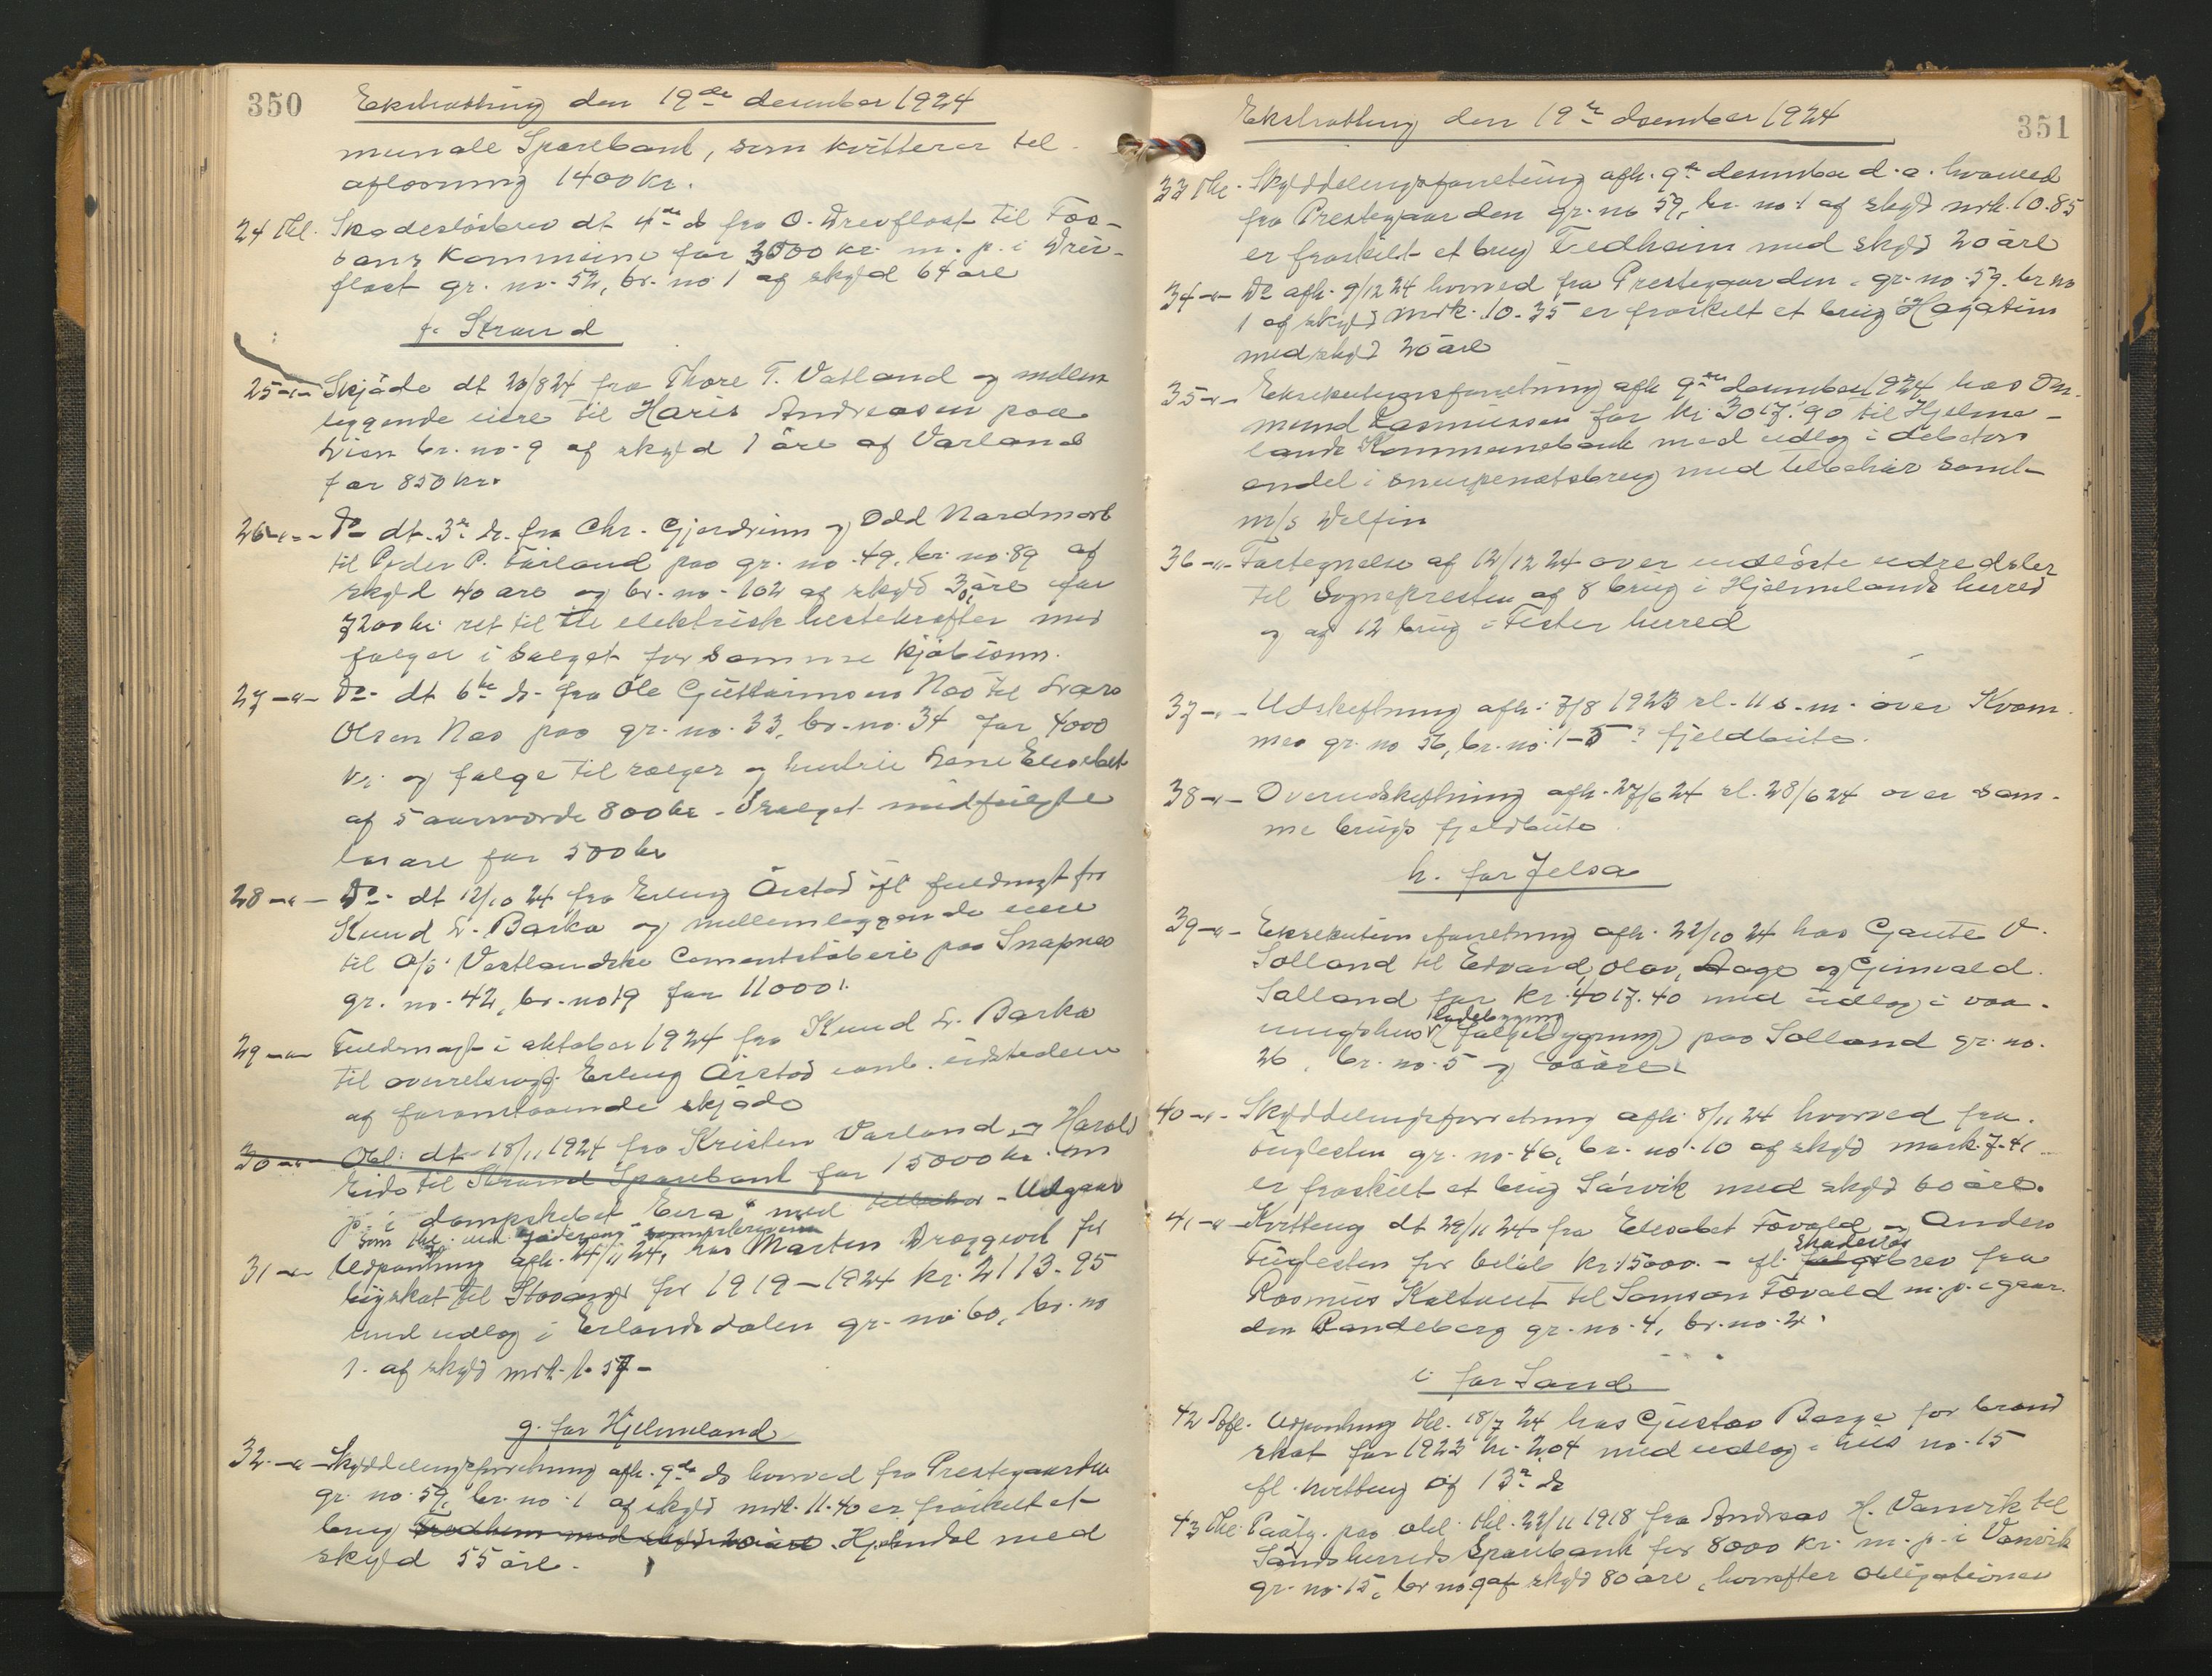 350
Ekstratting den 19de desember 1924
munale Sparebank, som kvitterer til
aflösning 1400 kr.
24 thl. Skadeslösbrev dt 4de ds fra O. Drevfloat til Fos-
sans Kommune for 3000 kr. m. p. i Drev-
float gr. no. 52, br. no 1 af skyld 64 öre
f. Strand
25 -"- Skjöde dt 20/8 24 fra Thore T. Vatland og mellem
liggende eiere til Haris Andreasen paa
Lien br. no. 9 af skyld 1 öre af Varland
for 850 kr.
26 -"- Do dt. 3de ds. fra Chr. Gjerdrum og Odd Nordmark
til Peder P. Tärland paa gr. no. 49, br. no. 89 af
skyld 40 öre og br. no. 102 af skyld 30 öre for
7200 kr. ret til elektrisk hestekrefter med
fölger i salget for samme kjöbesum.
27 -"- Do dt 6te ds. fra Ole Guttormsen Næs til Lars
Olsen Næs paa gr. no. 33, br. no. 34 for 4000
kr. og folge til sælger og hustru Lene Elisabet
af 5 aarsværde 800 kr. I salget medfulgte
lösöre for 500 kr
28 -"- Do dt 12/10 24 fra Erling Örstad ifl fuldmagt fra
Knud L. Barka og mellemliggende eiere
til A/S Vestlandske Cementstöberi paa Snapnes
gr. no. 42, br. no 19 for 11000.
29 -"- Fuldmagt i oktober 1924 fra Knud L. Barka
til overretssagf. Erling Örstad udstedelse
af foranstaaende skjöde
30 -"- Obl. dt 18/11 1924 fra Kristen Varland og Harald
Eide til Strand Sparebank for 15000 kr. m
p. i dampskibet "Eira" med tilbehör - Udgaar
som thl. ved
31 -"- Udpantning afh. 24/11 24, hos Marten Dræggevol for
byskat til Stavanger for 1919-1924 kr. 2113.95
med udlæg i Erlandsdalen gr. no 60, br. no
1. af skyld mrk. 1.57-
g. for Hjelmeland
32 -"- Skylddelingsforretning afh. 9de ds hvorved fra Prestegaarden
gr. no. 59, br. no 1 af skyld mrk. 11.40 er fraskilt et
brug Fredheim med skyld 20 öre Hjelmdal med
skyld 55 öre.
351
Ekstratting den 19de desember 1924
33 thl. Skylddelingsforretning afh. 9de desember d. a. hvorved
fra Prestegaarden gr. no 59, br. no 1 af skyld mrk. 10.85
er fraskilt et brug Fedheim med skyld 20 öre
34 -"- Do afh. 9/12 24 hvorved fra Prestegaarden gr. no. 59. br no
1 af skyld mrk. 10.35 er fraskilt et brug Hagatun
med skyld 20 öre
35 -"- Eksekutionsforretning afh 9de desember 1924 hos Om-
mund Rasmussen for kr. 3017.90 til Hjelme-
lands Kommunebank med udlæg i debitors
andel i snurpenotsbrug med tilbehör samt
m/s Delfin
36 -"- Fortegnelse af 12/12 24 over indlöste udredsler
til Sognepresten af 8 brug i Hjelmelands herred
og af 12 brug i Fister herred
37 -"- Udskiftning afh. 7/8 1923 sl. 11 s. m. over Kvam-
mes gr. no 56, br. no. 1-5 fjeldbeite.
38 -"- Overudskiftning afh. 27/6 24 sl. 28/6 24 over sam-
me brugs fjeldbeite
h. for Jelsa
39 -"- Eksekutionsforretning afh. 22/10 24 hos Gaute V.
Solland til Edvard, Olav, Aage og Gunvald
Salland for kr. 4017.40 med udlæg i vaa-
ningshus ladebygning (fælgebygning) paa Solland gr. no.
26, br. no. 5 og lösöre.
40 -"- Skylddelingsforretning afh. 8/11 24 hvorved fra
Fuglesten gr. no. 46, br. no. 10 af skyld mark. 7.41
er fraskilt et brug Sörvik med skyld 60 öre.
41 -"- Kvittering dt 29/11 24 fra Elisabet Fövald og Anders
Fuglesten for belöb kr. 15000. - ifl. skadeslösbrev fra
Rasmus Kaltveit til Samson Fövald m. p. i gaar-
den Randeberg gr. no. 4, br. no. 2.
i for Sand
42 Aofl. Udpantning thl. 18/7 24 hos Gustav Berge for brand
skat for 1923 kr. 2.04 med udlæg i hus no. 15
ifl. kvittering af 13de ds
43 thl. Paateg. paa obl. thl. 22/11 1918 fra Andreas H. Vanvik til
Sands herreds Sparebank for 8000 kr. m. p. i Vanvik
gr. no. 15, br no. 9 af skyld 80 öre, hvorefter obligationen